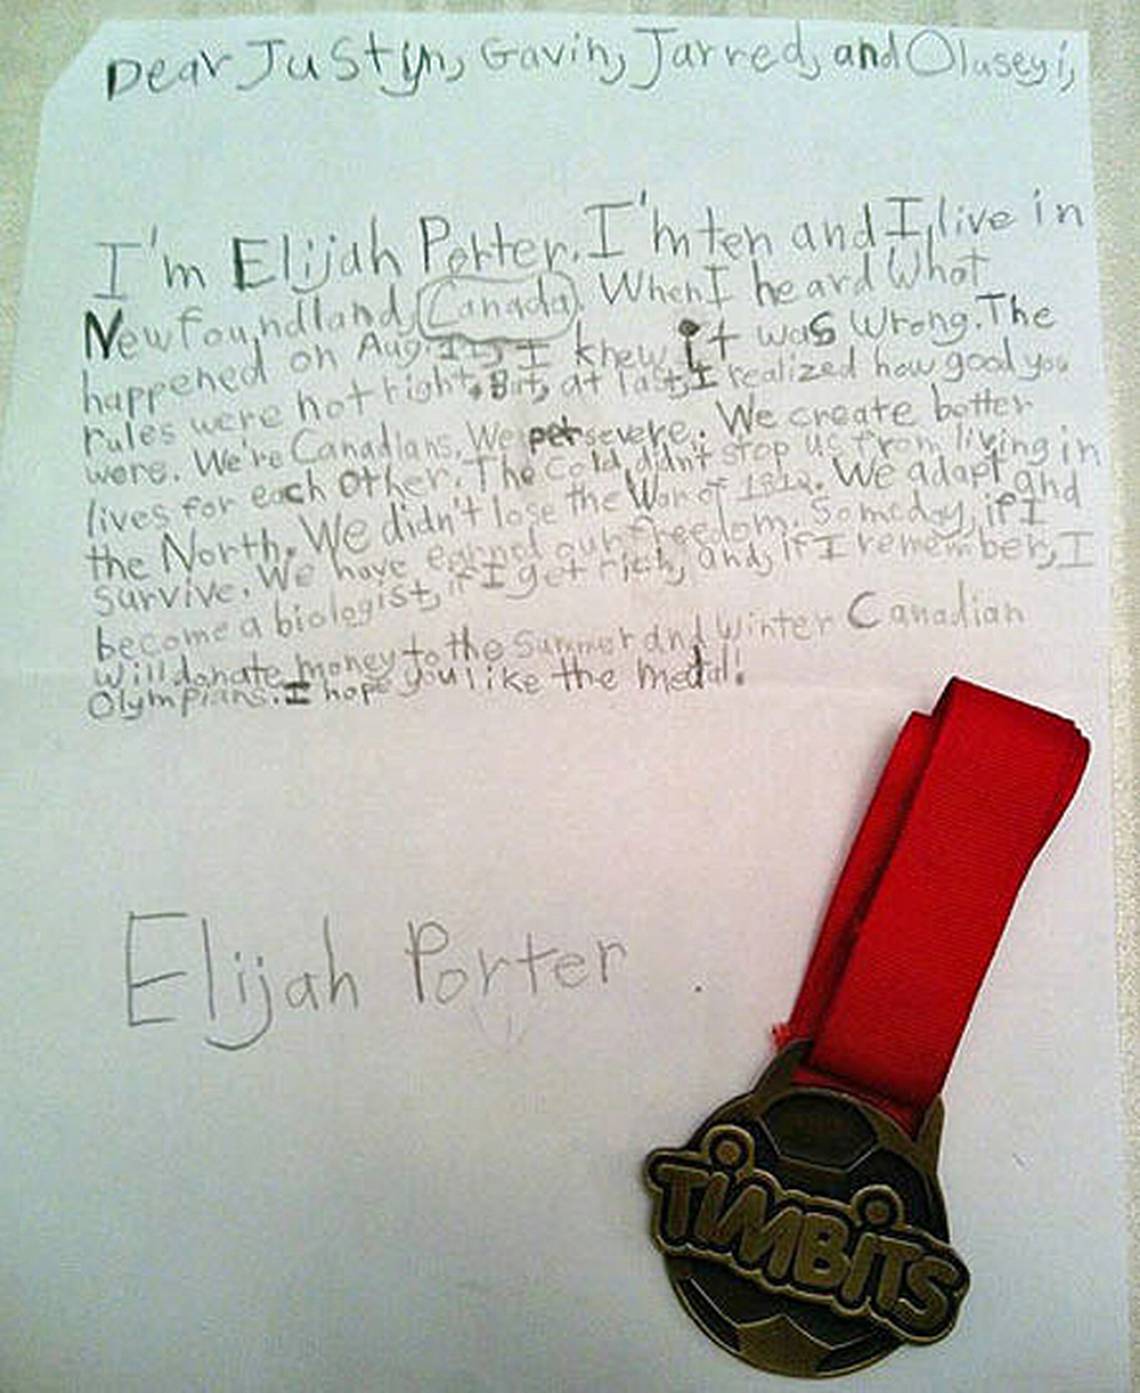 Dear Justyn, Gavin, Jarred, and Oluseyi,
I'm Elijah Porter. I'm ten and I live in
Newfoundland, Canada. When I heard what
happened on Aug. 11, I knew it was wrong. The
rules were not right. But, at last, I realized how good you
were. We're Canadians. We persevere. We create better
lives for each other. The cold didn't stop us from living in
the North. We didn't lose the War of 1812. We adapt and
survive. We have earned our freedom. Someday, if I
become a biologist, if I get rich, and, if I remember, I
will donate money to the Summer and Winter Canadian
Olympians. I hope you like the medal!
Elijah Porter
TIMBITS